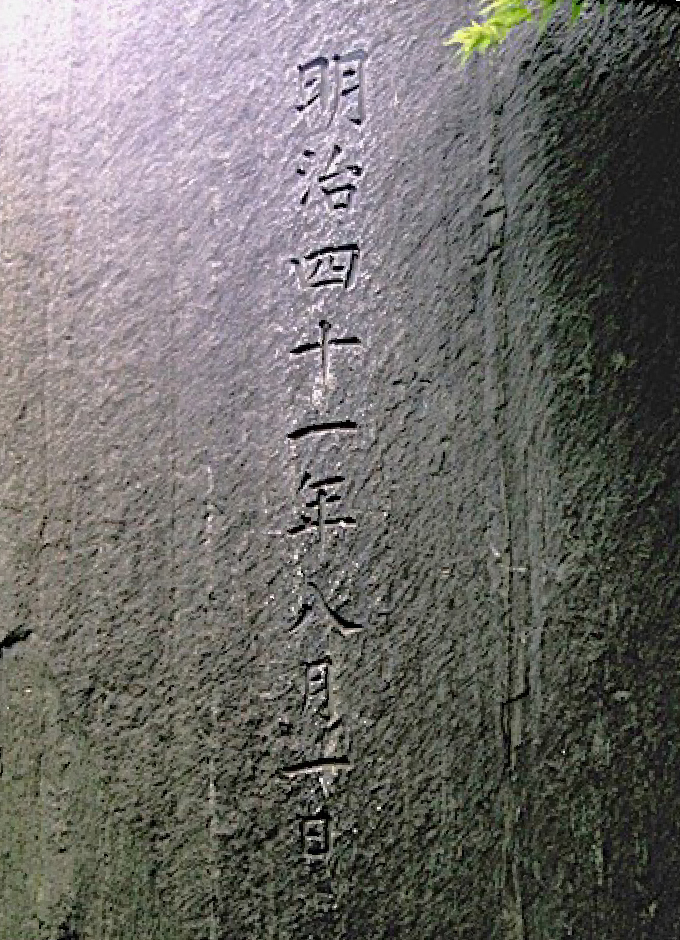 明治四十一年八月一日